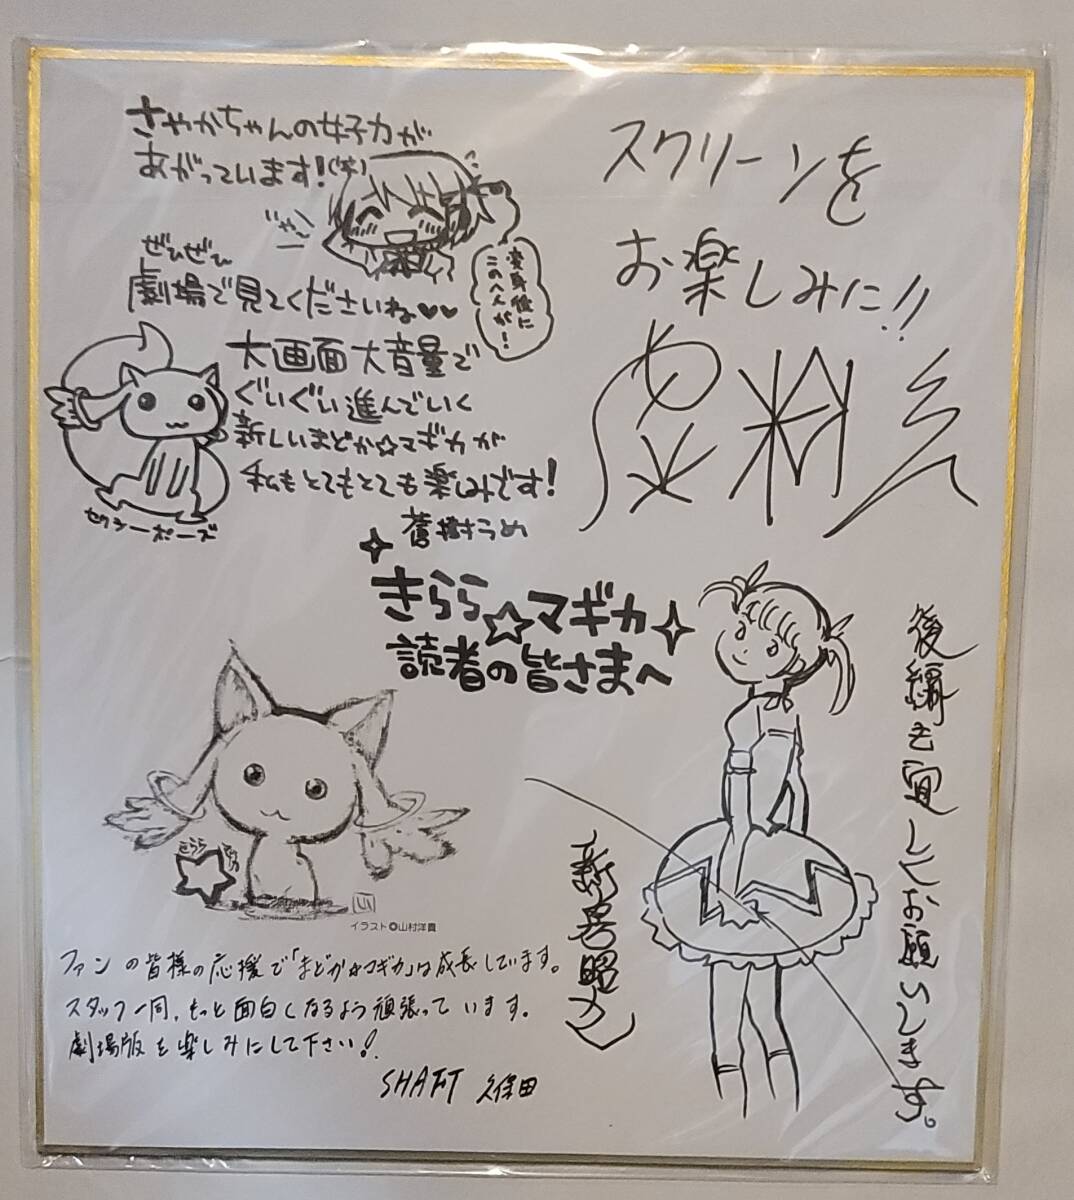 さやかちゃんの女子力が
あがっています!(笑)
ぜひぜひ
劇場で見てくださいね♥♥
変身後に
このへんが!
大画面大音量で
ぐいぐい進んでいく
新しいまどか☆マギカが
私もとてもとても楽しみです!
蒼樹うめ
セクシーポーズ
スクリーンを
お楽しみに!!
きらら☆マギカ
読者の皆さまへ
後編も宜しくお願いします。
新房昭之
イラスト◎山村洋貴
ファンの皆様の応援で「まどか☆マギカ」は成長しています。
スタッフ一同、もっと面白くなるよう頑張っています。
劇場版を楽しみにして下さい!!
SHAFT 久保田